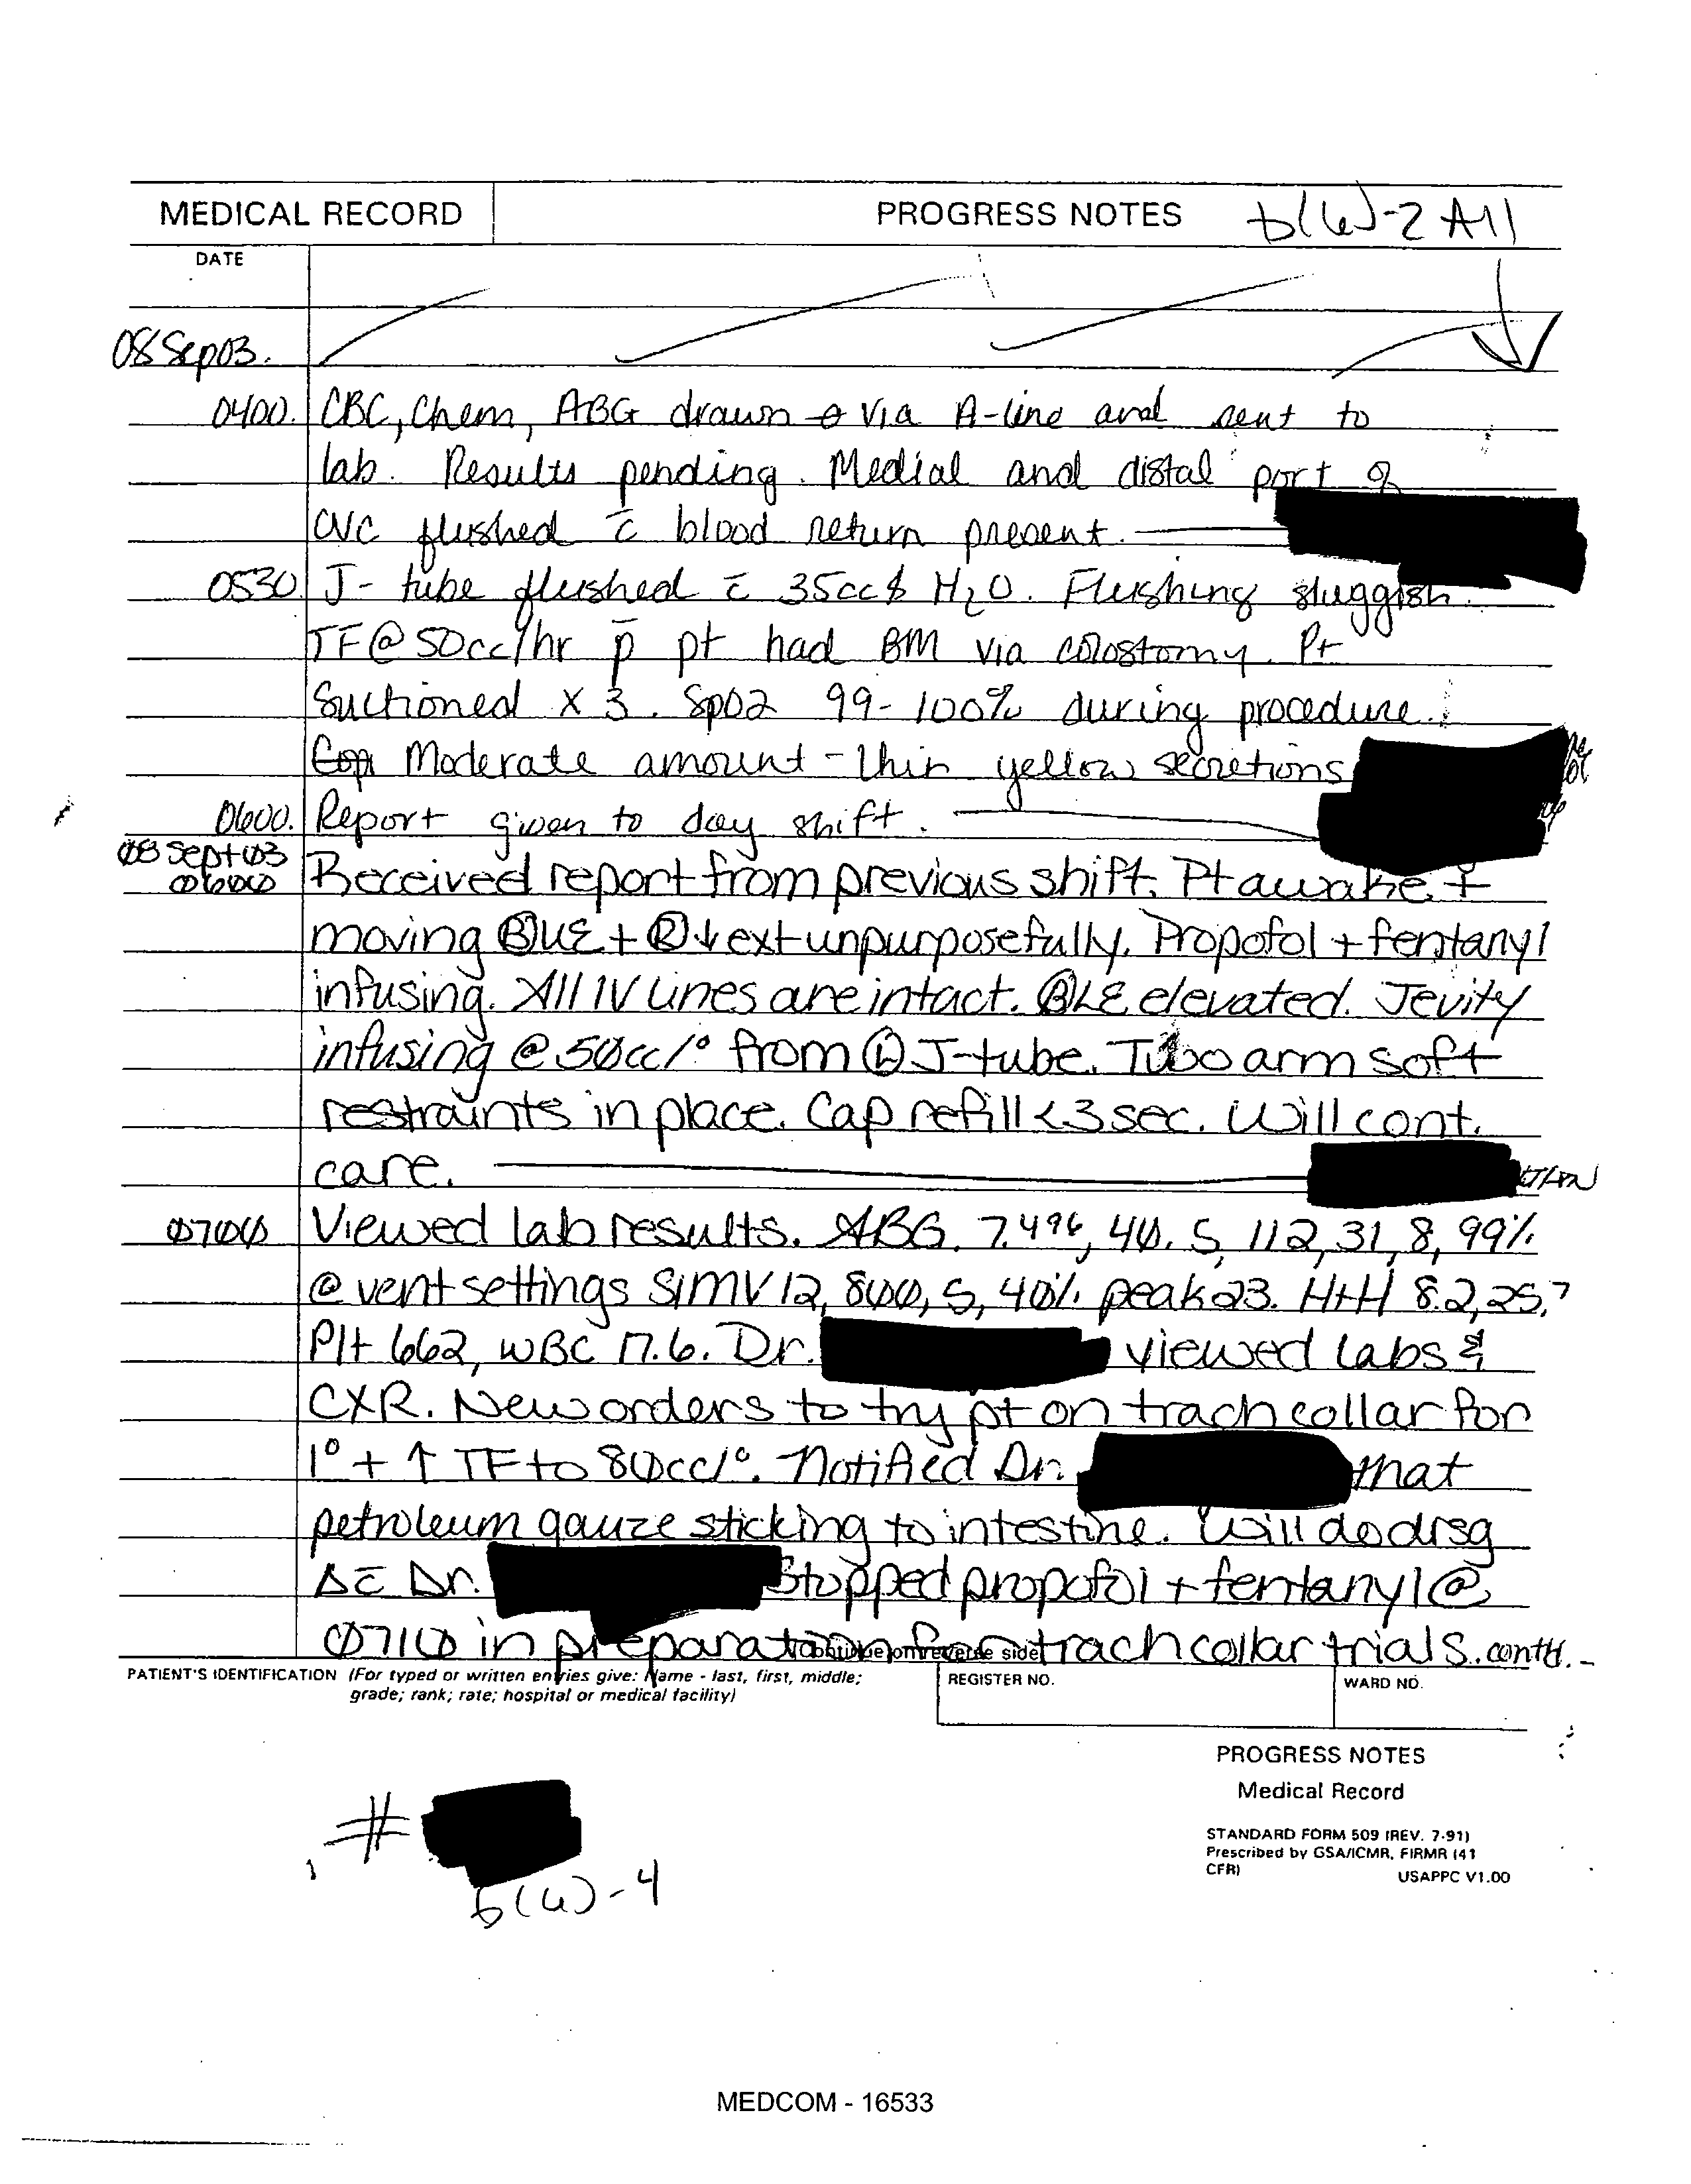 MEDICAL RECORD PROGRESS NOTES b(6)-2 All
DATE
08 Sep 03.
0400. CBC, Chem, ABG drawn via A-line and sent to
lab. Results pending. Medial and distal port of
CVC flushed c̄ blood return present.
0530 J-tube flushed c̄ 35cc's H2O. Flushing sluggish.
TF @ 50cc/hr p̄ pt had BM via colostomy. Pt
Suctioned x 3. SpO2 99-100% during procedure.
Moderate amount - thin yellow secretions
0600. Report given to day shift.
08 Sept 03
0600 Received report from previous shift. Pt awake +
moving Ⓑ UE + Ⓡ ↓ ext unpurposefully. Propofol + fentanyl
infusing. All IV lines are intact. Ⓑ LE elevated. Jevity
infusing @ 50cc/° from Ⓛ J-tube. Two arm soft
restraints in place. Cap refill <3 sec. Will cont.
care.
0700 Viewed lab results. ABG. 7.496, 40.5, 112, 31, 8, 99%
@ vent settings SIMV 12, 800, 5, 40% peak 23. H+H 8.2, 25.7
Plt 662, WBC 17.6. Dr. viewed labs &
CXR. New orders to try pt on trach collar for
1° + ↑ TF to 80cc/°. Notified Dr. that
petroleum gauze sticking to intestine. Will do drsg
Δ c̄ Dr. Stopped propofol + fentanyl @
0710 in preparation for trach collar trials. contd.-
(Continue on reverse side)
PATIENT'S IDENTIFICATION (For typed or written entries give: Name - last, first, middle;
grade; rank; rate; hospital or medical facility)
REGISTER NO.
WARD NO.
PROGRESS NOTES
Medical Record
STANDARD FORM 509 (REV. 7-91)
Prescribed by GSA/ICMR, FIRMR (41
CFR)
USAPPC V1.00
#
b(6)-4
MEDCOM - 16533